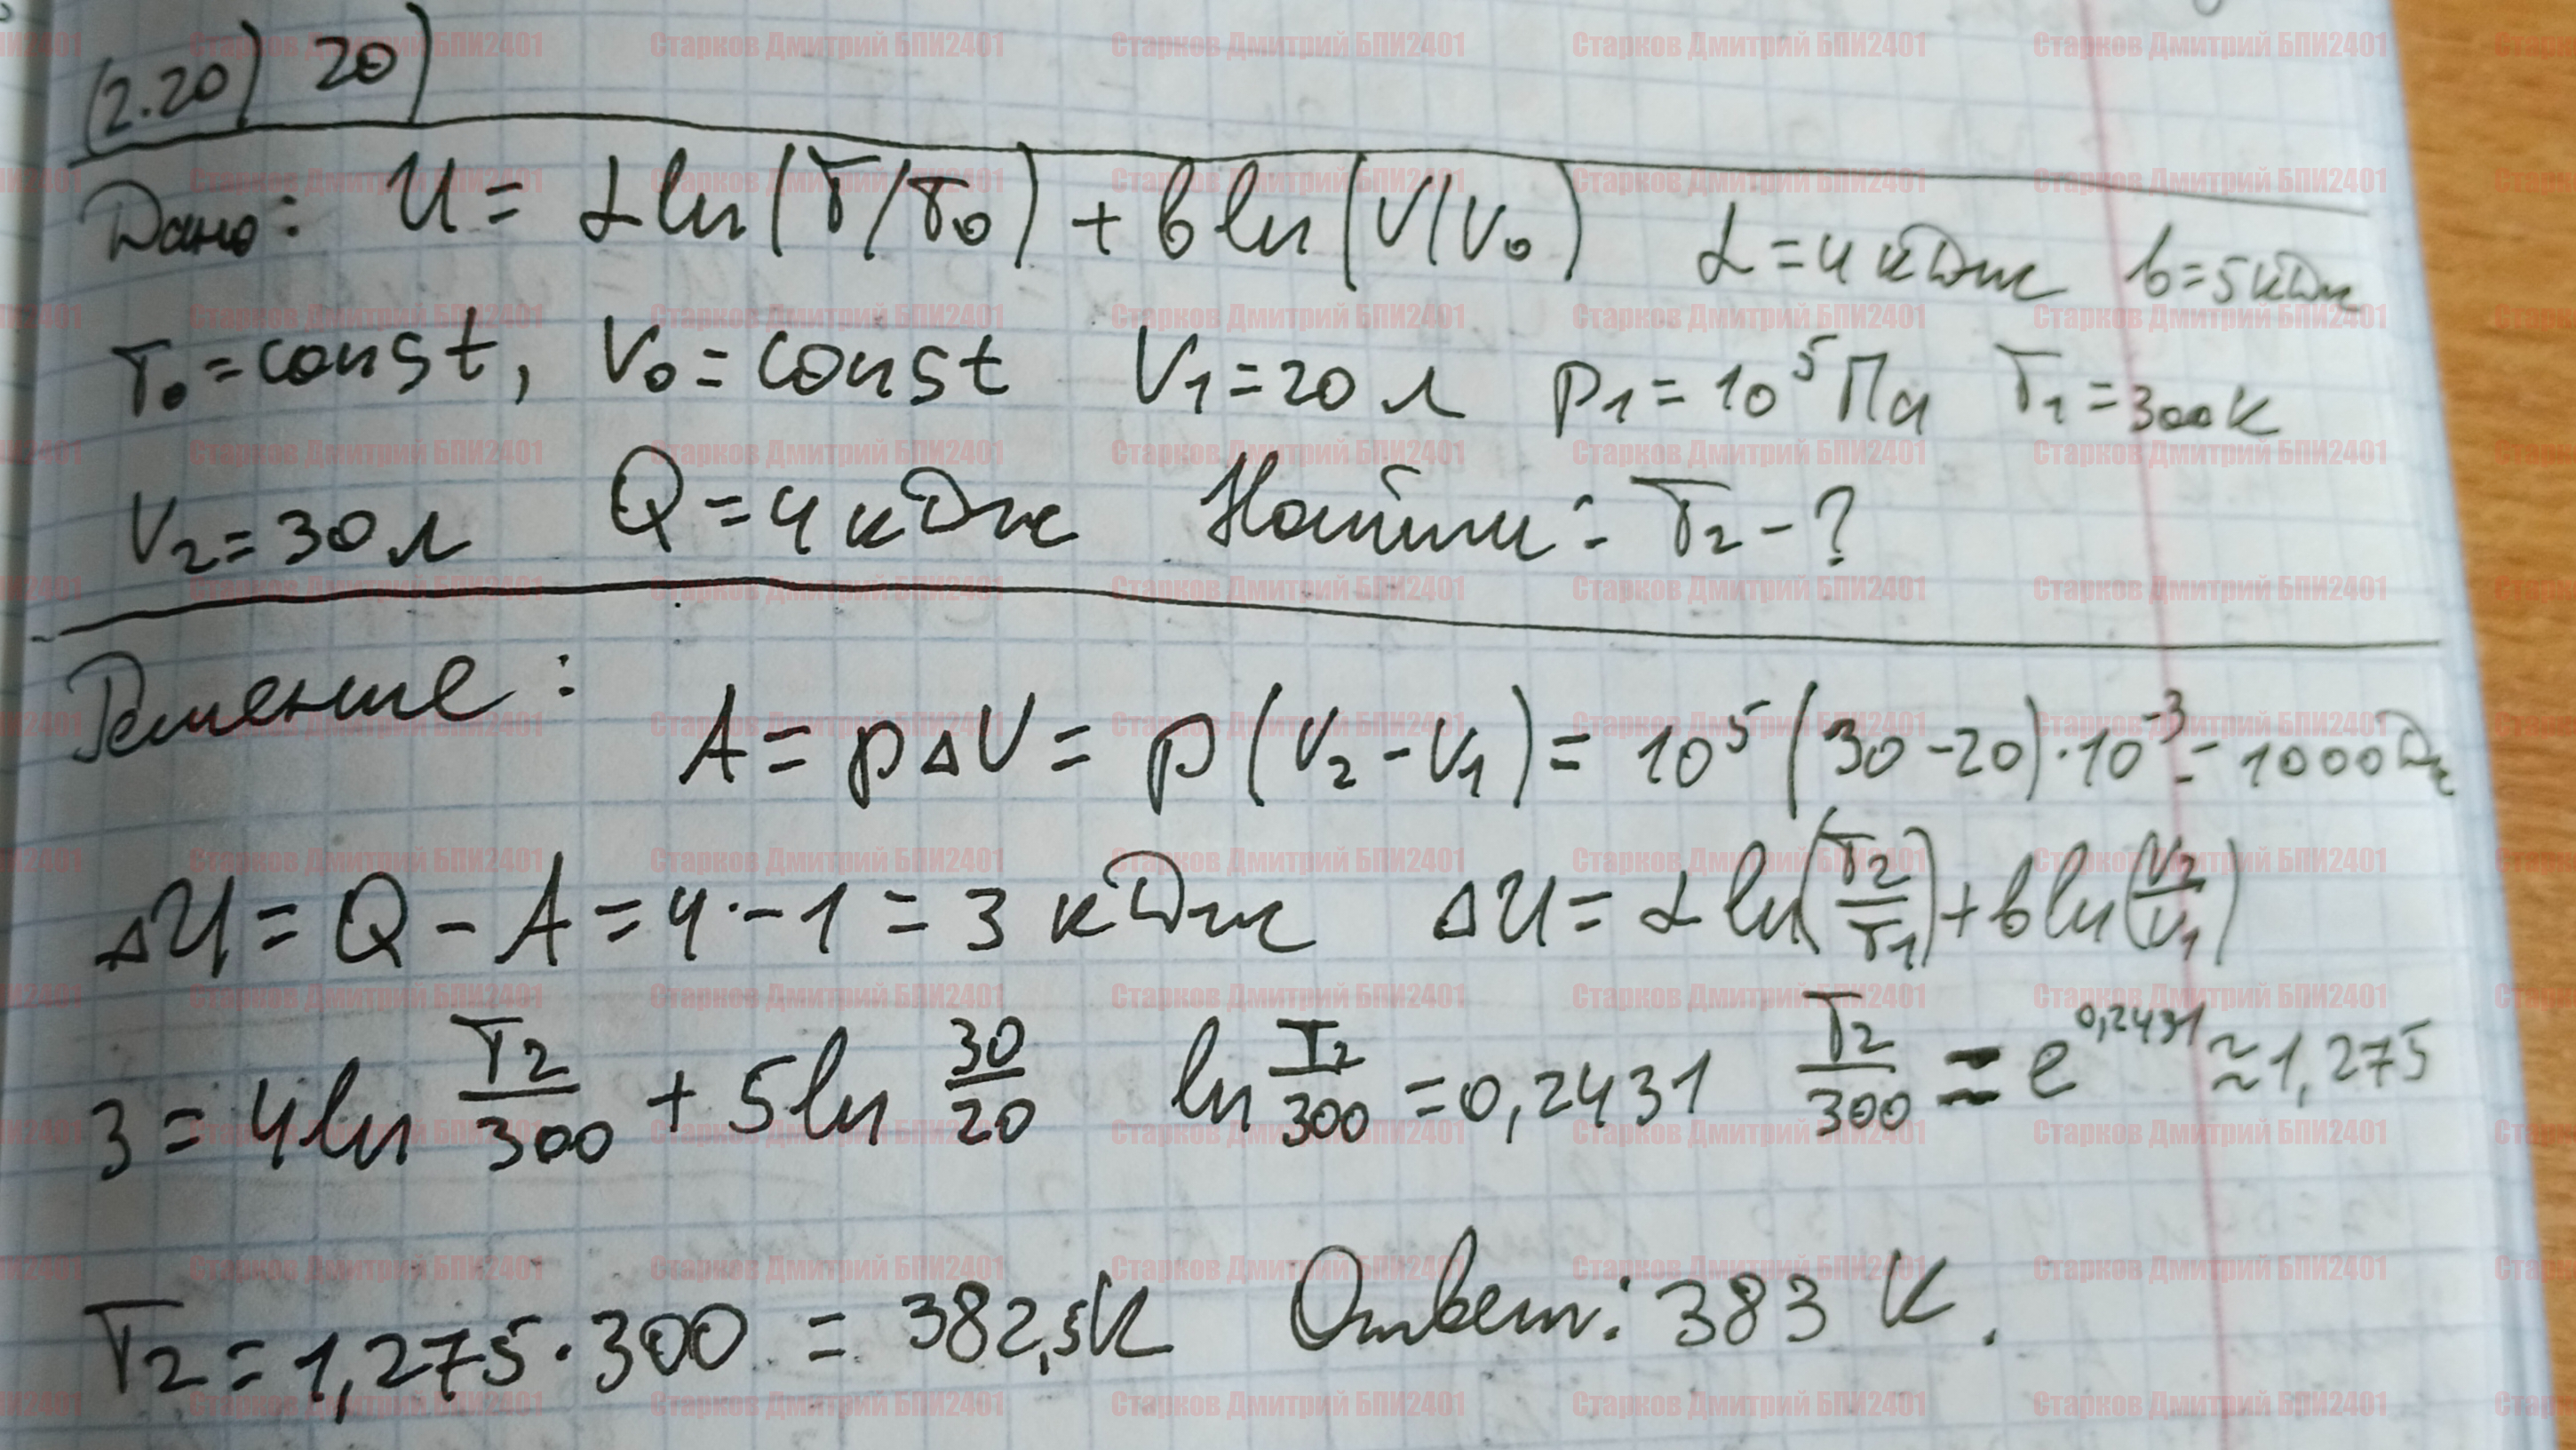 (2.20) 20)
Дано: U = α ln(T/T₀) + b ln(V/V₀) α = 4 кДж b = 5 кДж
T₀ = const, V₀ = const V₁ = 20 л p₁ = 10⁵ Па T₁ = 300 К
V₂ = 30 л Q = 4 кДж Найти: T₂ - ?
Решение: A = pΔV = p(V₂ - V₁) = 10⁵(30 - 20)·10⁻³ = 1000 Дж
ΔU = Q - A = 4 - 1 = 3 кДж ΔU = α ln(T₂/T₁) + b ln(V₂/V₁)
3 = 4 ln T₂/300 + 5 ln 30/20 ln T₂/300 = 0,2431 T₂/300 = e^0,2431 ≈ 1,275
T₂ = 1,275 · 300 = 382,5 К Ответ: 383 К.
Старков Дмитрий БПИ2401